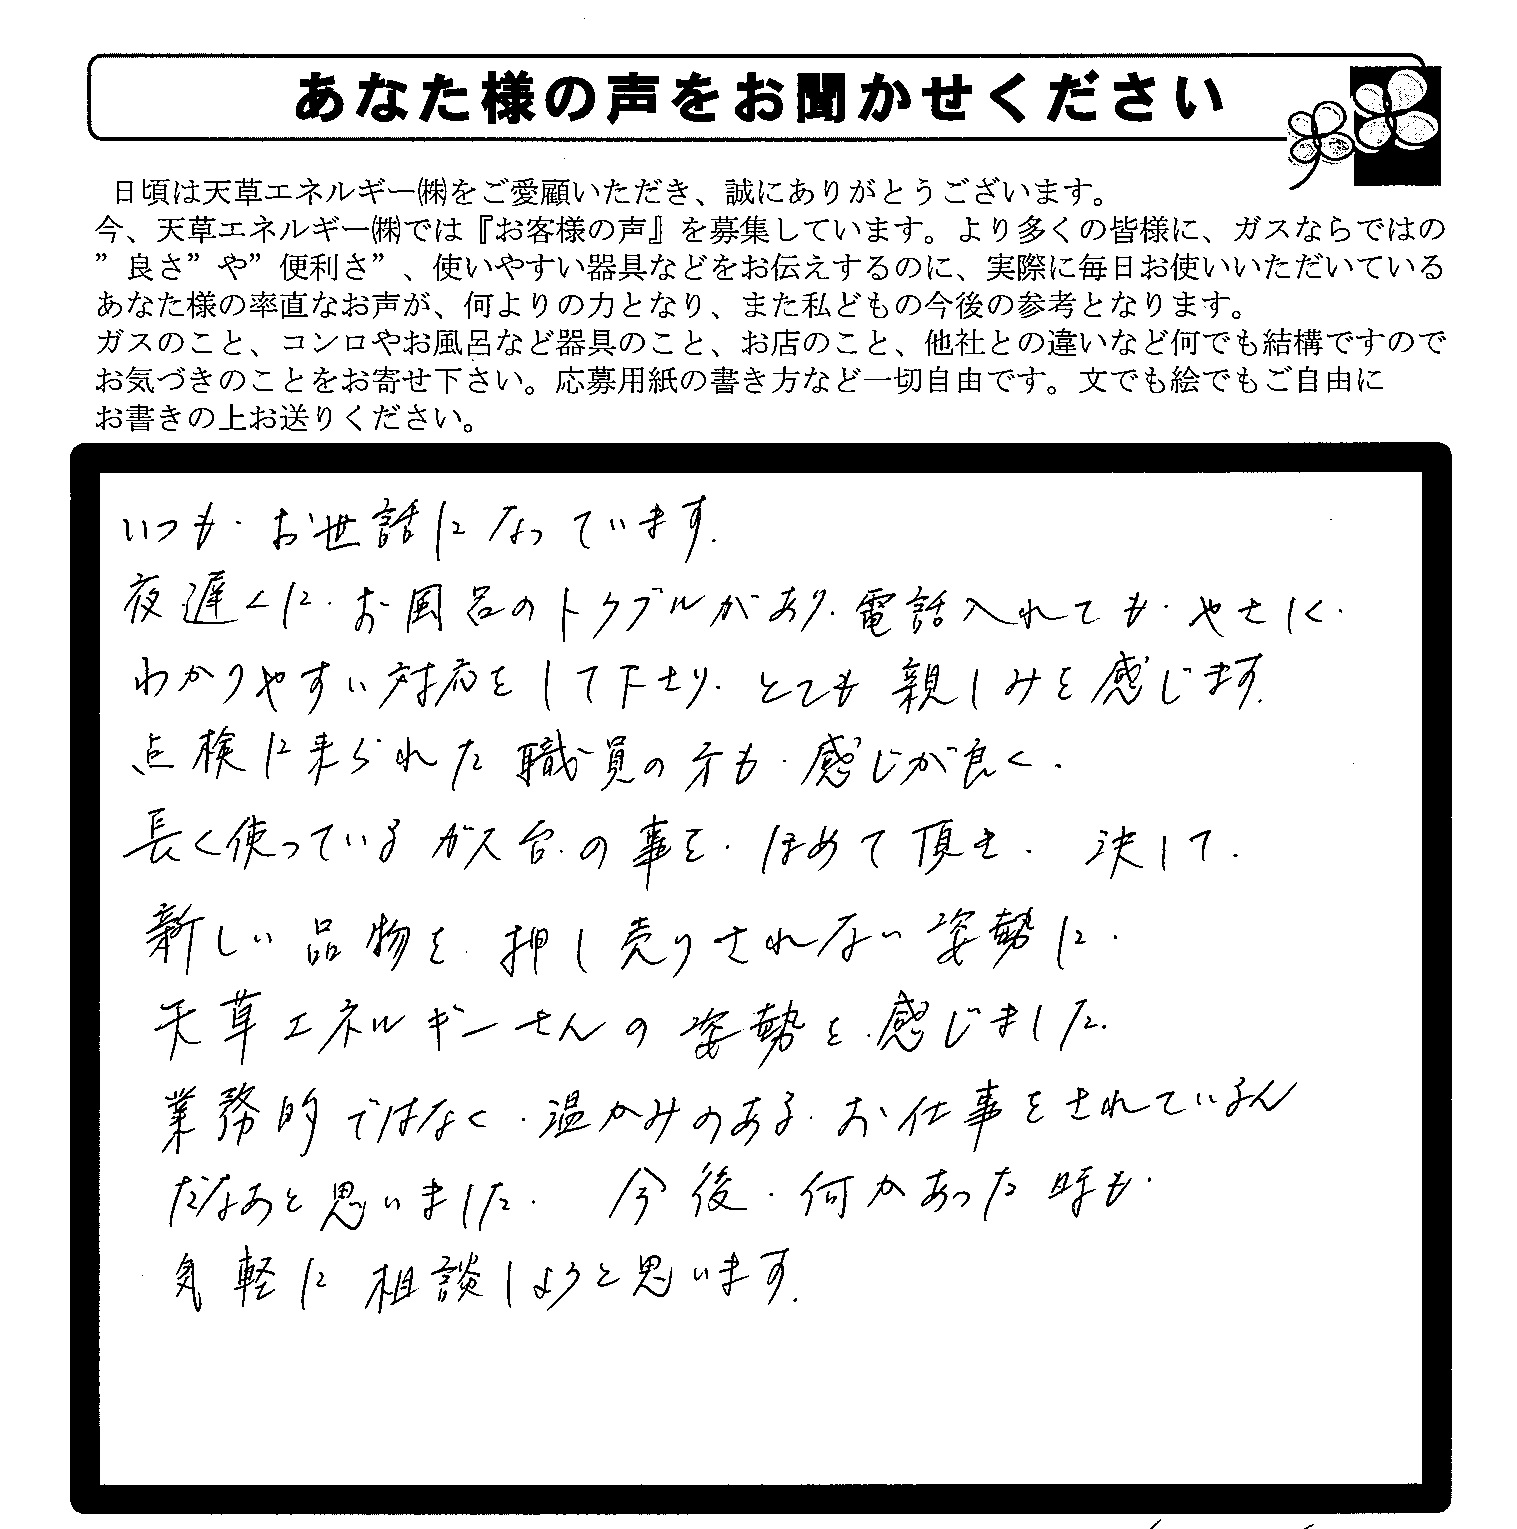 あなた様の声をお聞かせください
日頃は天草エネルギー㈱をご愛顧いただき、誠にありがとうございます。
今、天草エネルギー㈱では『お客様の声』を募集しています。より多くの皆様に、ガスならではの
”良さ”や”便利さ”、使いやすい器具などをお伝えするのに、実際に毎日お使いいただいている
あなた様の率直なお声が、何よりの力となり、また私どもの今後の参考となります。
ガスのこと、コンロやお風呂など器具のこと、お店のこと、他社との違いなど何でも結構ですので
お気づきのことをお寄せ下さい。応募用紙の書き方など一切自由です。文でも絵でもご自由に
お書きの上お送りください。
いつも、お世話になっています。
夜遅くに、お風呂のトラブルがあり、電話入れても、やさしく、
わかりやすい対応をして下さり、とても親しみを感じます。
点検に来られた職員の方も、感じが良く、
長く使っているガス台の事を、ほめて頂き、決して、
新しい品物を、押し売りされない姿勢に、
天草エネルギーさんの姿勢を、感じました。
業務的ではなく、温かみのある、お仕事をされているん
だなあと思いました。今後、何かあった時も、
気軽に相談しようと思います。